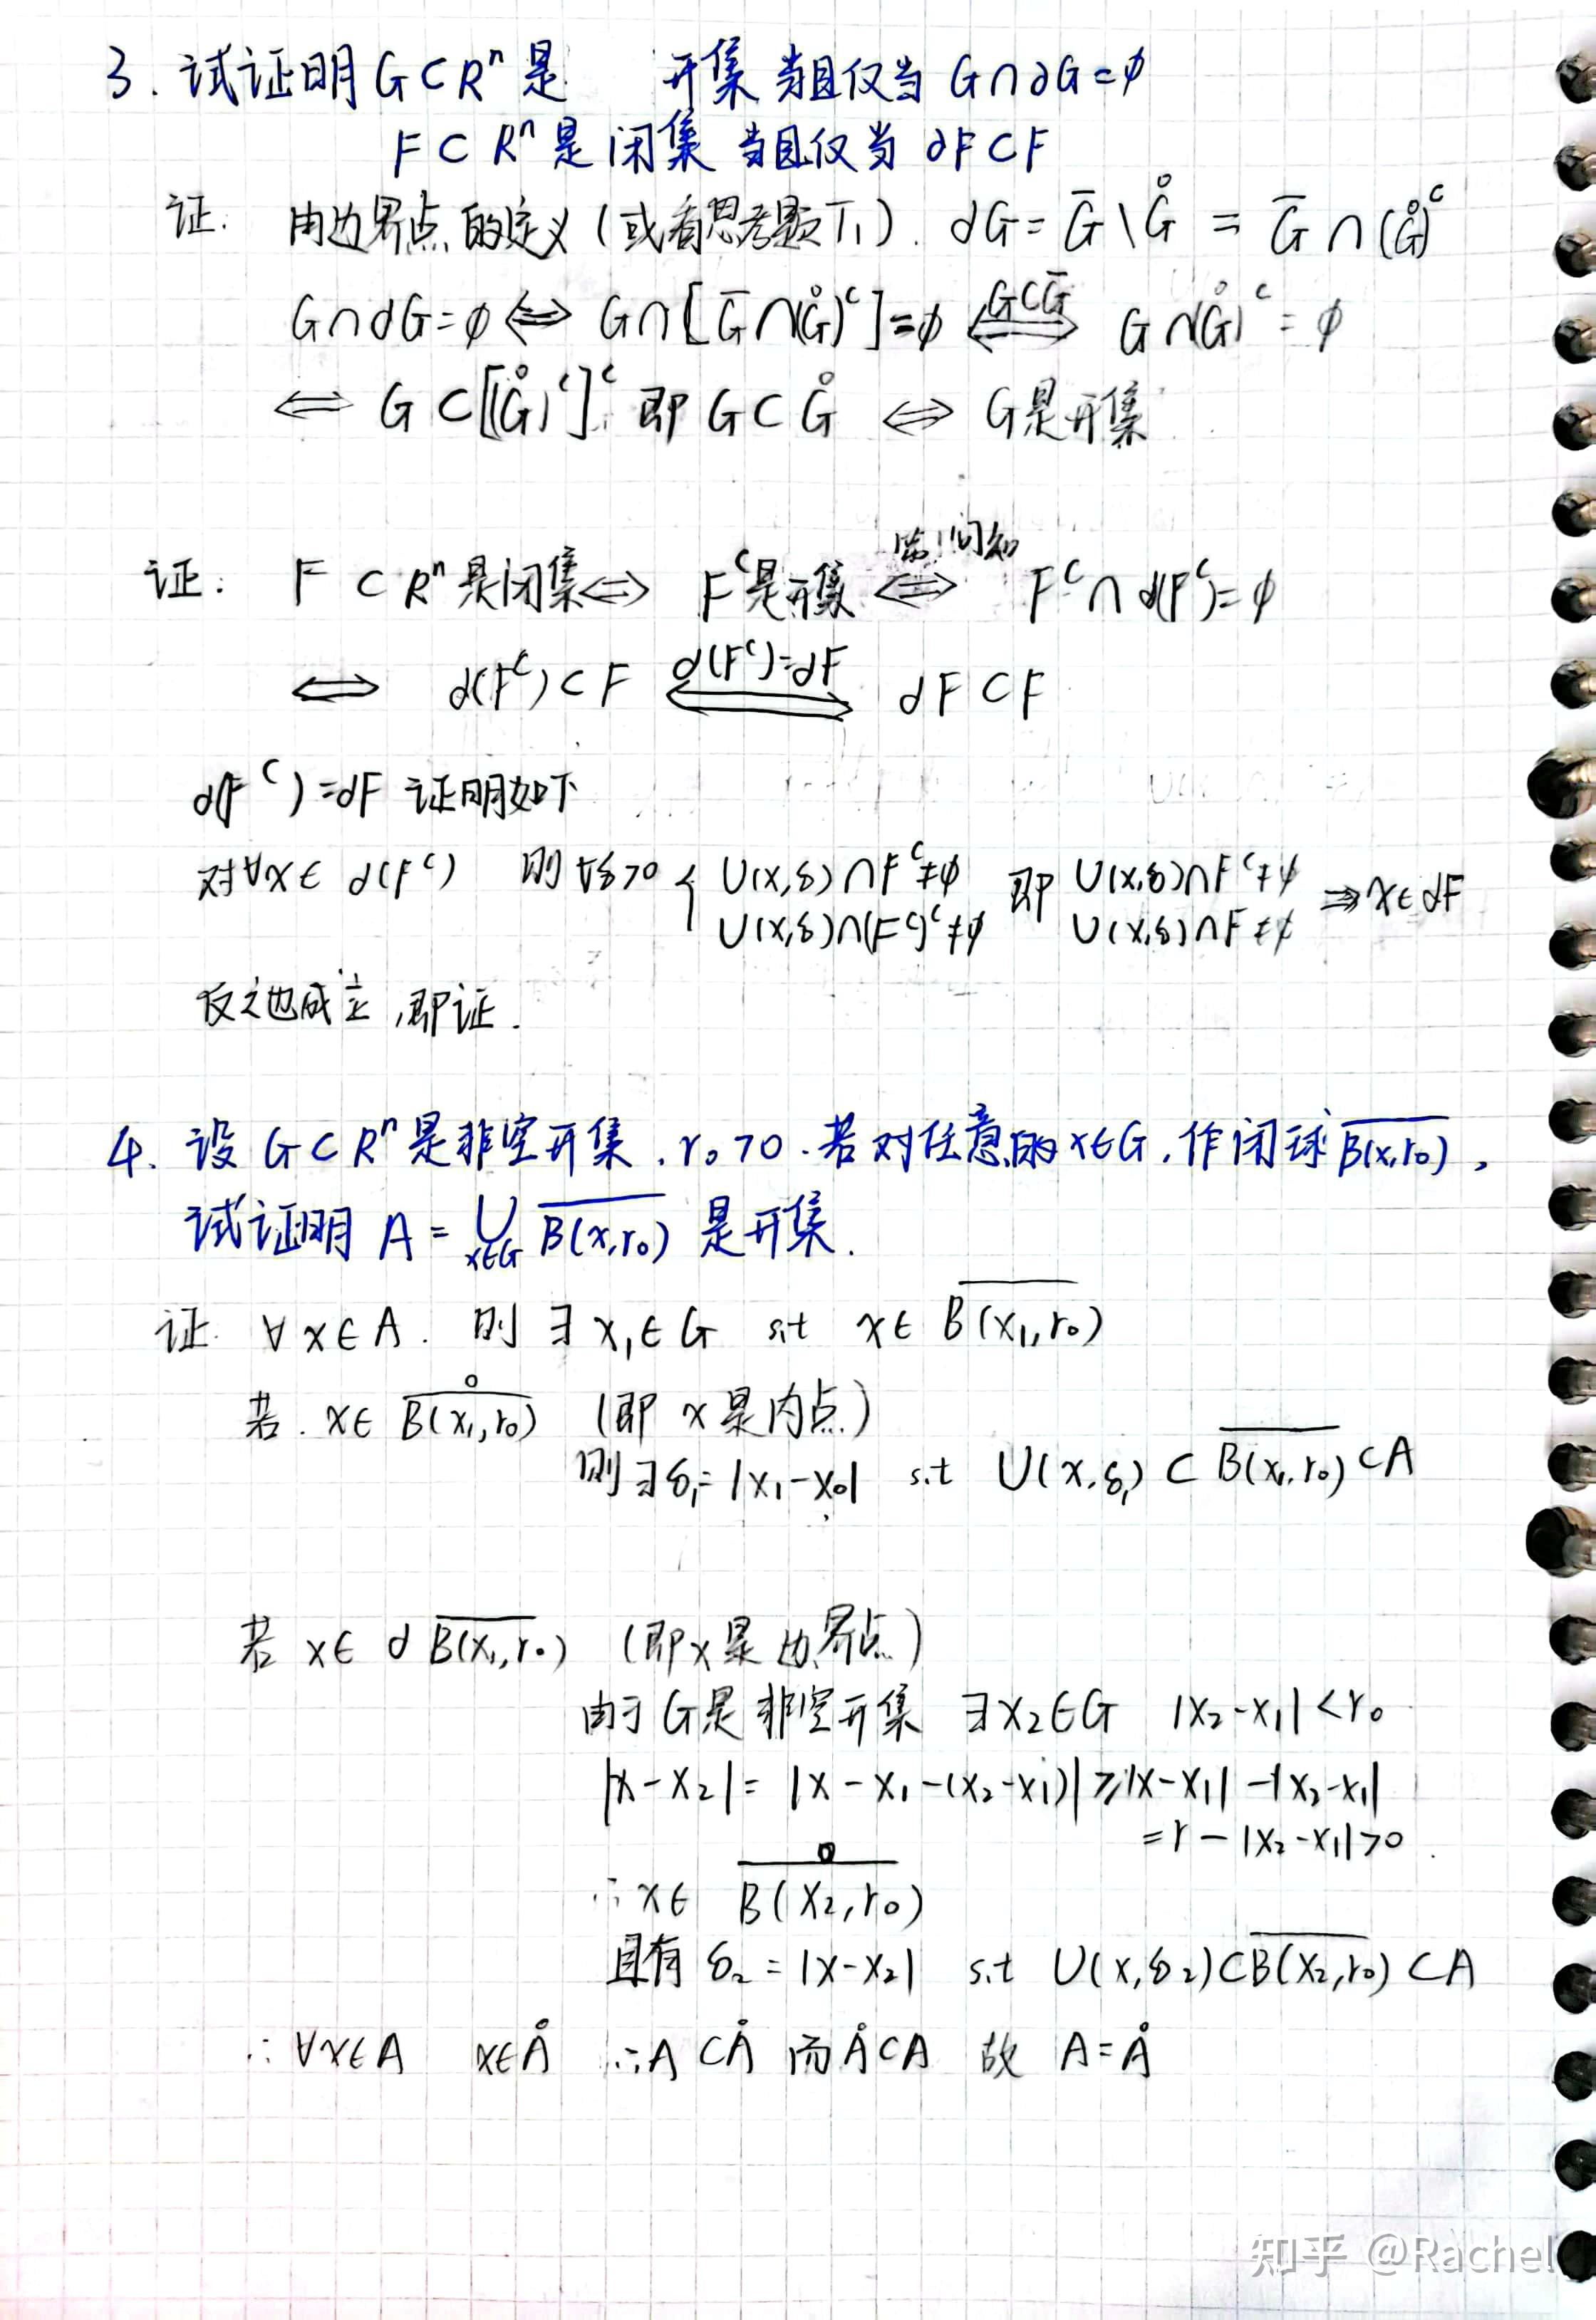 3. 试证明 G⊂Rⁿ 是 开集 当且仅当 G∩∂G=∅
F⊂Rⁿ 是闭集 当且仅当 ∂F⊂F
证. 由边界点的定义(或看思考题T₁). ∂G=G̅\G̊ = G̅∩(G̊)ᶜ
G∩∂G=∅ ⟺ G∩[G̅∩(G̊)ᶜ]=∅ ⟺(G⊂G̅) G∩(G̊)ᶜ=∅
⟺ G⊂[(G̊)ᶜ]ᶜ 即 G⊂G̊ ⟺ G是开集
证: F⊂Rⁿ是闭集⟺ Fᶜ是开集 ⟺ Fᶜ∩∂(Fᶜ)=∅
⟺ ∂(Fᶜ)⊂F ⟺(∂(Fᶜ)=∂F) ∂F⊂F
∂(Fᶜ)=∂F 证明如下
对∀x∈∂(Fᶜ) 则∀δ>0 { U(x,δ)∩Fᶜ≠∅ 即 U(x,δ)∩Fᶜ≠∅ ⇒x∈∂F
U(x,δ)∩(Fᶜ)ᶜ≠∅ U(x,δ)∩F≠∅
反之也成立,即证.
4. 设 G⊂Rⁿ是非空开集, r₀>0. 若对任意的x∈G, 作闭球 \overline{B(x,r₀)},
试证明 A=⋃_{x∈G} \overline{B(x,r₀)} 是开集.
证 ∀x∈A. 则 ∃x₁∈G s.t x∈\overline{B(x₁,r₀)}
若. x∈\mathring{\overline{B(x₁,r₀)}} (即 x是内点)
则∃δ₁=|x₁-x₀| s.t U(x,δ₁)⊂\overline{B(x₁,r₀)}⊂A
若 x∈∂\overline{B(x₁,r₀)} (即x是边界点)
由于G是非空开集 ∃x₂∈G |x₂-x₁|<r₀
|x-x₂|=|x-x₁-(x₂-x₁)|≥|x-x₁|-|x₂-x₁|
=r-|x₂-x₁|>0.
∴x∈\mathring{\overline{B(x₂,r₀)}}
且有 δ₂=|x-x₂| s.t U(x,δ₂)⊂\overline{B(x₂,r₀)}⊂A
∴∀x∈A x∈Å ∴A⊂Å 而Å⊂A 故 A=Å
知乎 @Rachel